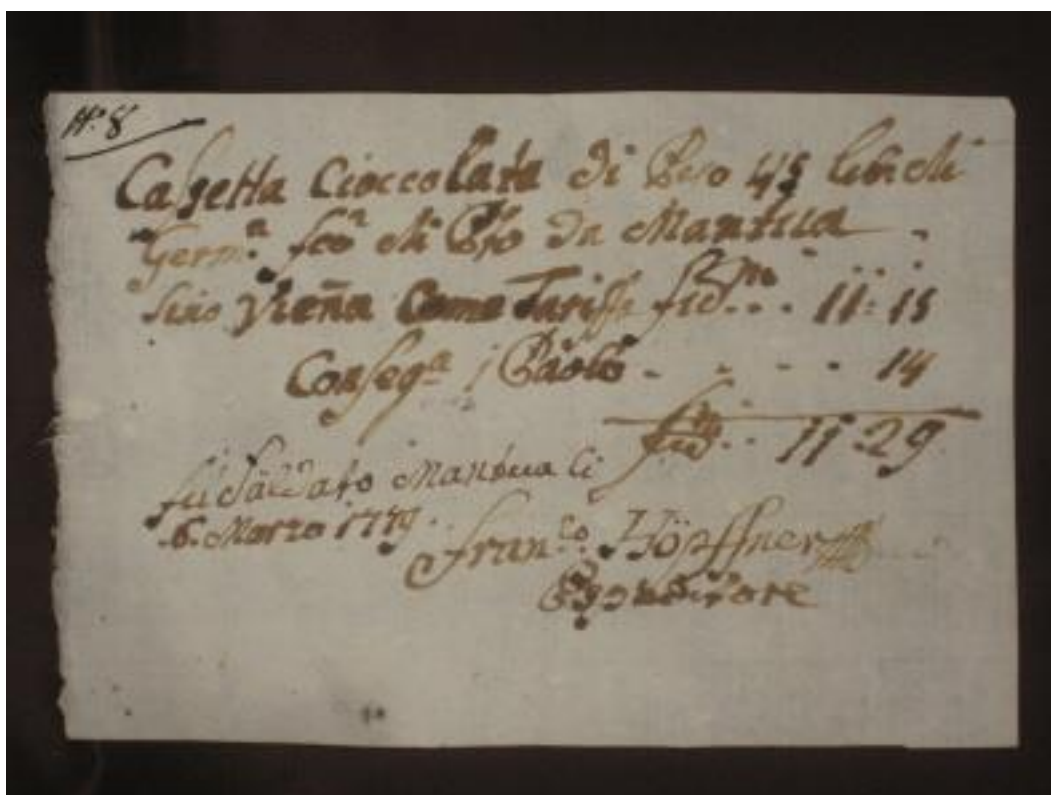 N.º 8
Casetta Cioccolata di Peso 45 lib. di
Germ.ª di Porto da Mantua
sino Vieña Come Tariffa 11: 15
Conseg.ª 14
11: 29
fù Saldato Mantua li
6. Marzo 1779.
Fran.co Höpffner
Speditore